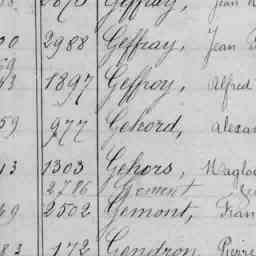 Geffray, Jean
00 2988 Geffray, Jean
13 1897 Geffroy, Alfred
59 977 Gehord,
13 1303 Gehors,
2786 Gement
2502 Gemont, Fran
83 172 Gendron, Pierre